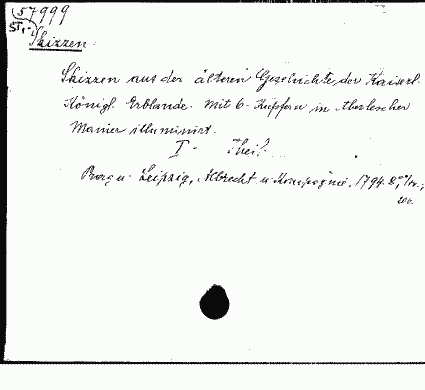 57999
Skizzen.
Skizzen aus der älteren Geschichte der Kaiserl.
Königl. Erblande. Mit 6. Kupfern in
Manier illuminirt.
I. Theil.
Prag u. Leipzig, Albrecht u. Kompagnie. 1794. 8°,